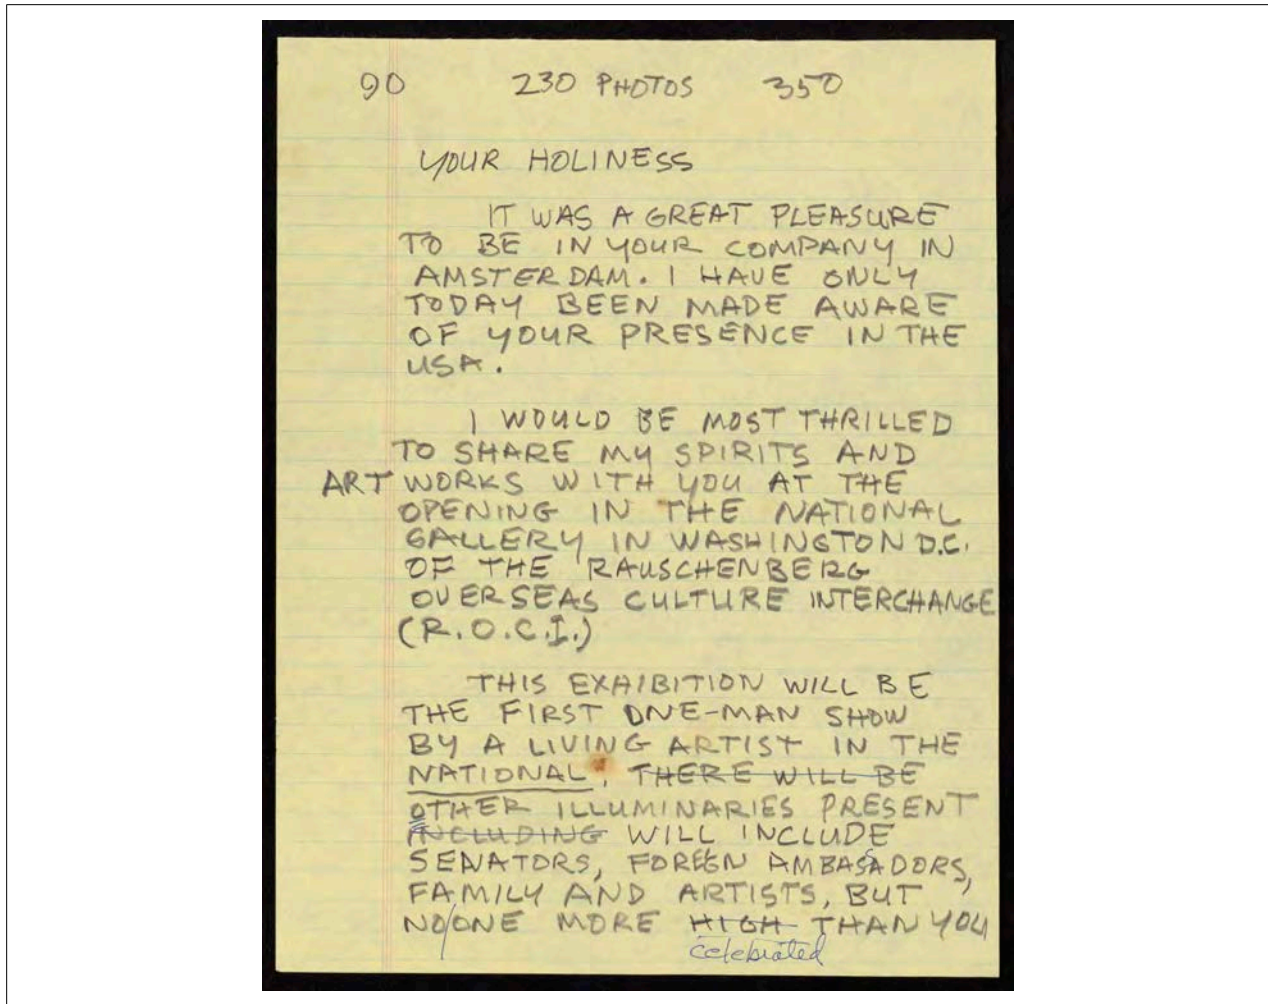 90 230 PHOTOS 350
YOUR HOLINESS
IT WAS A GREAT PLEASURE
TO BE IN YOUR COMPANY IN
AMSTERDAM. I HAVE ONLY
TODAY BEEN MADE AWARE
OF YOUR PRESENCE IN THE
USA.
I WOULD BE MOST THRILLED
TO SHARE MY SPIRITS AND
ART WORKS WITH YOU AT THE
OPENING IN THE NATIONAL
GALLERY IN WASHINGTON D.C.
OF THE RAUSCHENBERG
OVERSEAS CULTURE INTERCHANGE
(R.O.C.I.)
THIS EXHIBITION WILL BE
THE FIRST ONE-MAN SHOW
BY A LIVING ARTIST IN THE
NATIONAL, THERE WILL BE
OTHER ILLUMINARIES PRESENT
INCLUDING WILL INCLUDE
SENATORS, FOREIGN AMBASSADORS,
FAMILY AND ARTISTS, BUT
NO/ONE MORE HIGH THAN YOU
celebrated